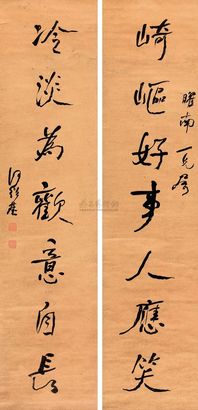 崎嶇好事人應笑
南一兄屬
冷淡為歡意自長